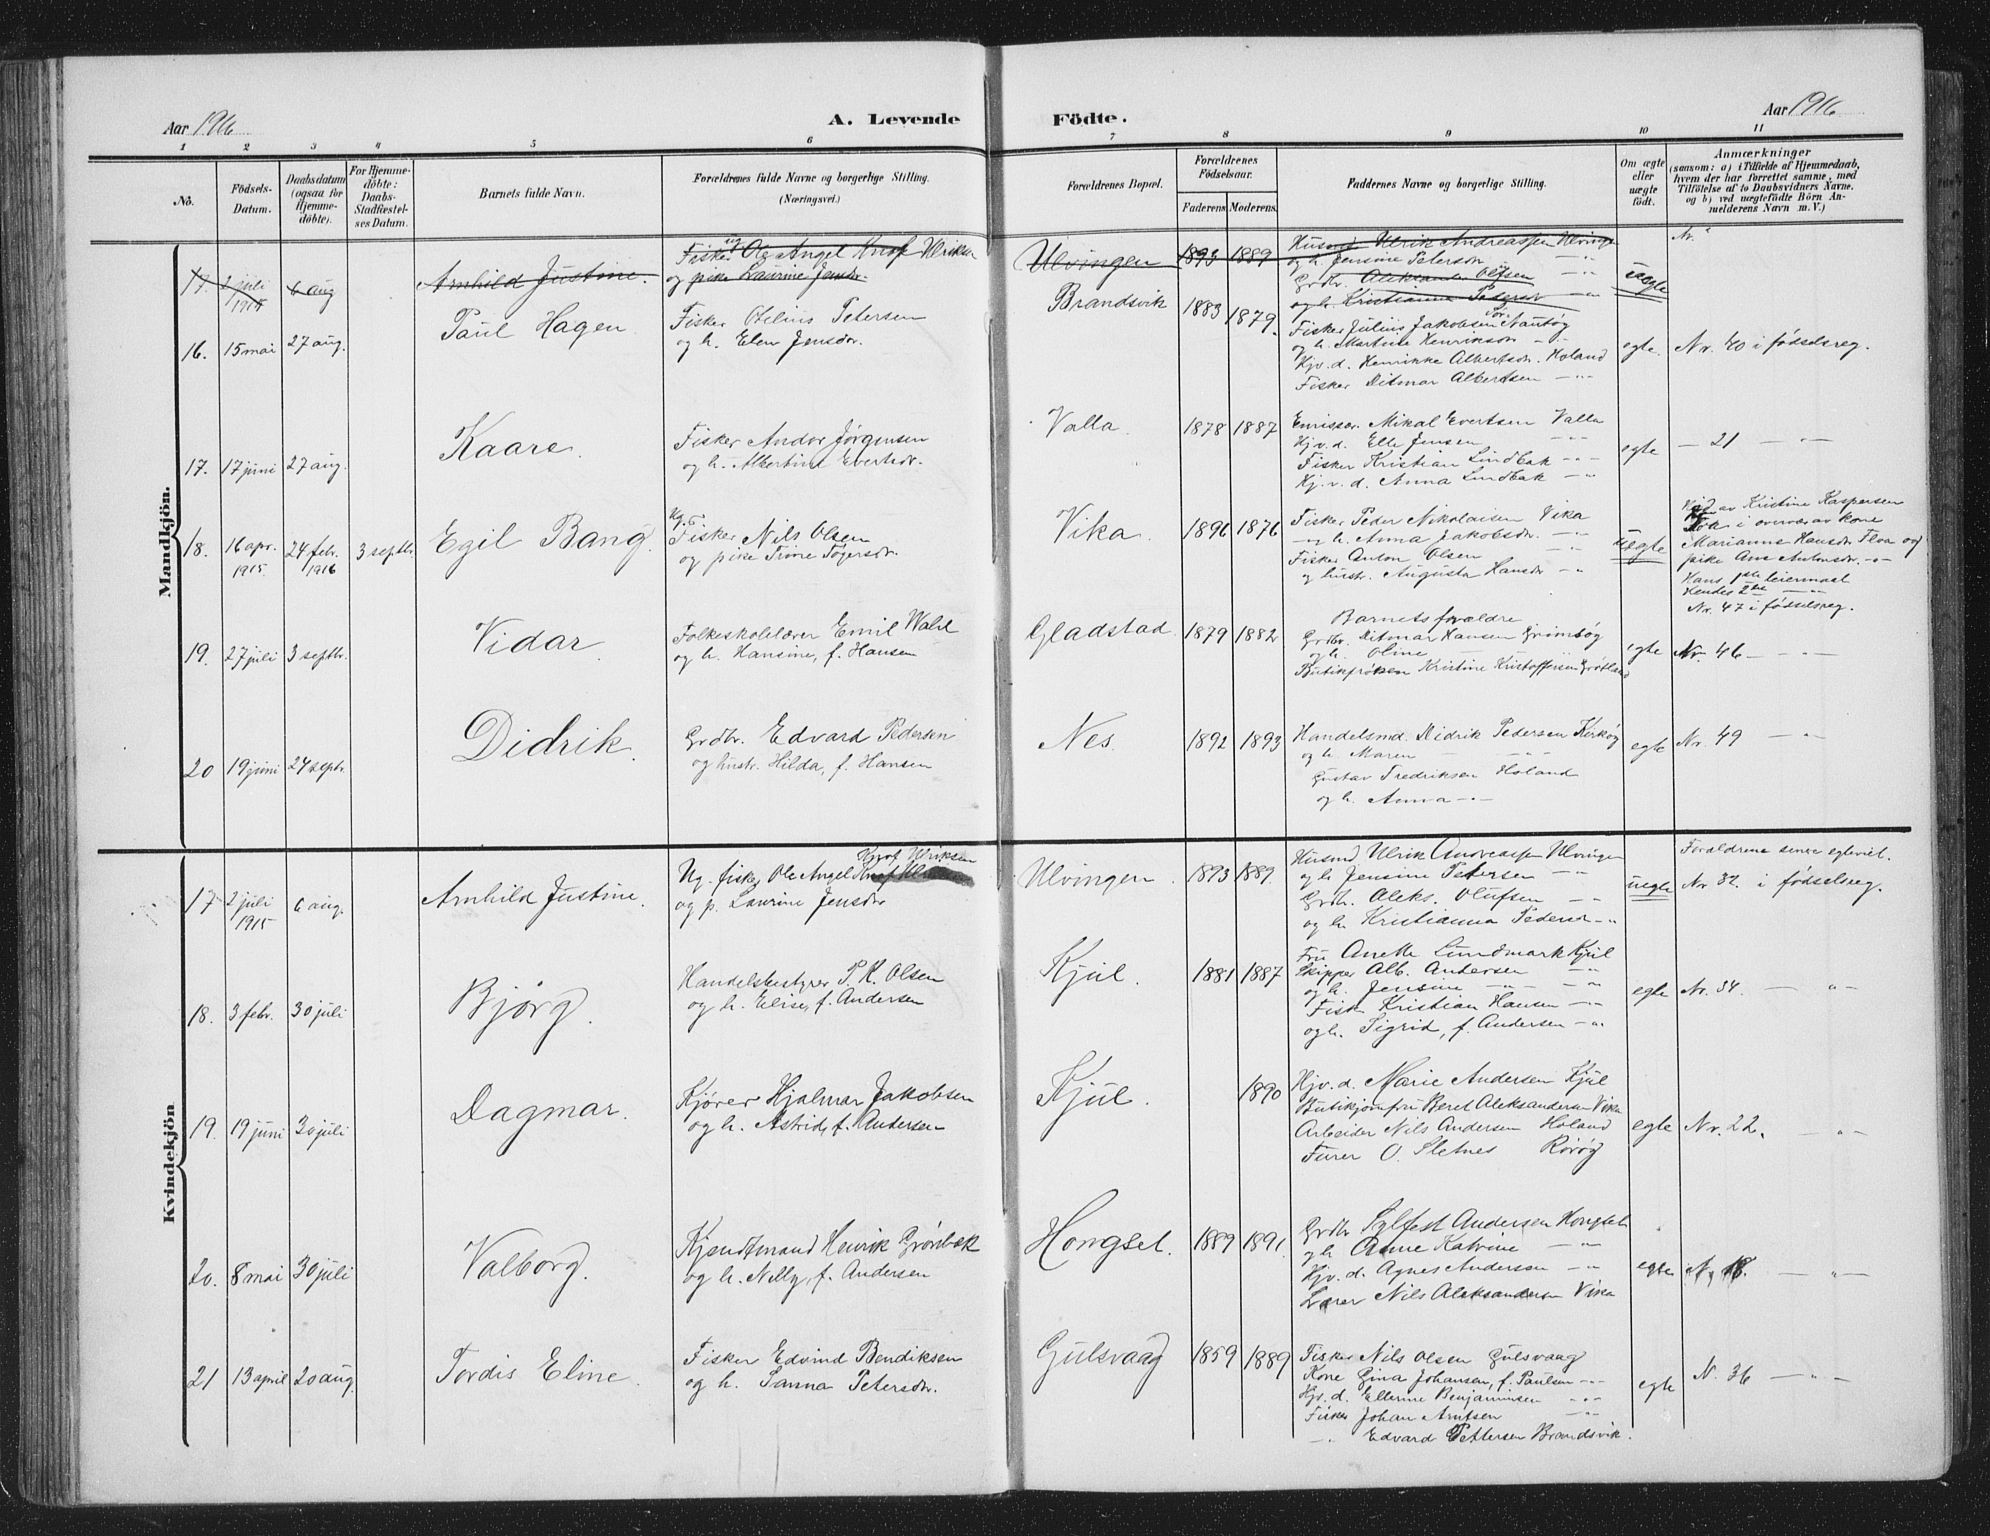 Aar 1916
A. Levende Födte.
Aar 1916
1 2 3 4 5 6 7 8 9 10 11
No.
Födsels-Datum.
Daabsdatum (ogsaa for Hjemme-döbte).
For Hjemme-döbte: Daabs-Stadfæstel-ses Datum.
Barnets fulde Navn.
Forældrenes fulde Navne og borgerlige Stilling. (Næringsvei.)
Forældrenes Bopæl.
Forældrenes Födselsaar.
Faderens. Moderens.
Faddernes Navne og borgerlige Stilling.
Om ægte eller uægte födt.
Anmærkninger
(saasom: a) i Tilfælde af Hjemmedaab,
hvem der har forrettet samme, med
Tilföielse af to Daabsvidners Navne.
og b) ved uægtefödte Börn An-
melderens Navn m. V.)
Mandkjön.
17. 2 juli 1915 6 aug Arnhild Justine
Fisker Ole Angel Knof Ulriksen
og pike Laurine Jensdr.
Ulvingen 1893 1889
Husmd Ulrik Andreassen Ulvingen
og h. Jensine Peterson
Grdbr. Aleksander Olfsen
og h. Kristianna Pedersdr
uegte
Nr.
16. 15 mai 27 aug. Paul Hagen
Fisker Otelius Petersen
og h. Elen Jensdr.
Brandsvik 1883 1879.
Fisker Julius Jakobsen Nautög
og h. Martine Henrikson
Hjv. d. Henrikke Albertsdr. Höland
Fisker Ditmar Albertsen
egte. Nr. 40 i födselsreg.
17. 17 juni 27 aug. Kaare.
Fisker Andor Jørgensen
og h. Albertine Evertsdr.
Valla. 1878 1887
Emissær Mikal Evertsen Valla
Hjv. d. Elle Jensen
Fisker Kristian Lindbak
Hj. v. d. Anna Lindbak
egte — 21 — " —
18. 16 apr. 1915. 24 febr. 1916 3 septbr. Egil Bang.
Ug. Fisker Nils Olsen
og pike Trine Togersdr.
Vika. 1896 1876
Fisker Peder Nikolaisen Vika
og h. Anna Jakobsdr.
Fisker Anton Olsen
og hustr. Augusta Hansdr
uegte
av Kristine Kaspersen
i overvær av kone
Marianne Hansdr. Floa og
pike Ane Antonsdr.
Hans 1ste leiermaal
Hendes 2det
Nr. 47 i födselsreg.
19. 27 juli 3 septbr. Vidar.
Folkeskolelærer Emil Wald
og h. Hansine, f. Hansen
Gladstad. 1879 1882
Barnets forældre
Grdbr. Ditmar Hansen Grimsög
og h. Oline
Butikfröken Kristine Kristoffersen Gröttland
egte Nr. 46 — " —
20 19 juni 24 septr. Didrik.
Grdbr. Edvard Pedersen
og hustr. Hilda, f. Hansen
Nes. 1892 1893
Handelsmd. Didrik Pedersen Kirkög
og h. Maren
Gustav Fredriksen Höland
og h. Anna
egte Nr. 49 — " —
Kvindekjön
17 2 juli 1915 6 aug. Arnhild Justine.
Ug. fisker Ole Angel Knof Ulriksen
og p. Laurine Jensdr
Ulvingen. 1893 1889.
Husmd Ulrik Andreassen Ulvingen
og h. Jensine Petersen
Grdb. Aleks. Olufsen
og h. Kristianna Pedersd
uegte
Forældrene senere egteviet.
Nr 32. i födselsreg.
18. 3 febr. 30 juli Bjørg.
Handelsbestyrer P. K. Olsen
og h. Elise, f. Andersen
Kjul. 1881 1887
Fru Anette Lundmark Kjul
Skipper Alb. Andersen
og h. Jensine
Fisk Kristian Hansen
og h. Sigrid, f. Andersen
egte Nr. 34. — " —
19. 19 juni 30 juli Dagmar.
Kjörer Hjalmar Jakobsen
og h. Astrid, f. Andersen
Kjul. 1890
Hjv. d. Marie Andersen Kjul
Butikjomfru Beret Aleksandersen Vika
Arbeider Nils Andersen Höland
Furer O. Sletnes Rörög
egte Nr. 22. — " —
20. 8 mai 30 juli Valborg.
Kjendtmand Henrik Grönbæk
og h. Nelly, f. Andersen
Hongset. 1889 1891.
Grdbr Sylfest Andersen Hongset
og h. Anne Katrine
Hjv. d. Agnes Andersen
Lærer Nils Aleksandersen Vika
egte N. 18. — " —
21 13 april 20 aug. Tordis Eline.
Fisker Edvind Bendiksen
og h. Sanna Petersdr.
Gulsvaag 1859 1889
Fisker Nils Olsen Gulsvaag
Kone Gina Johansen, f. Paulsen
Hjv. d. Ellerine Benjaminsen
Fisker Johan Arntsen
— " — Edvard Pettersen Brandsvik.
egte N. 36 — " —